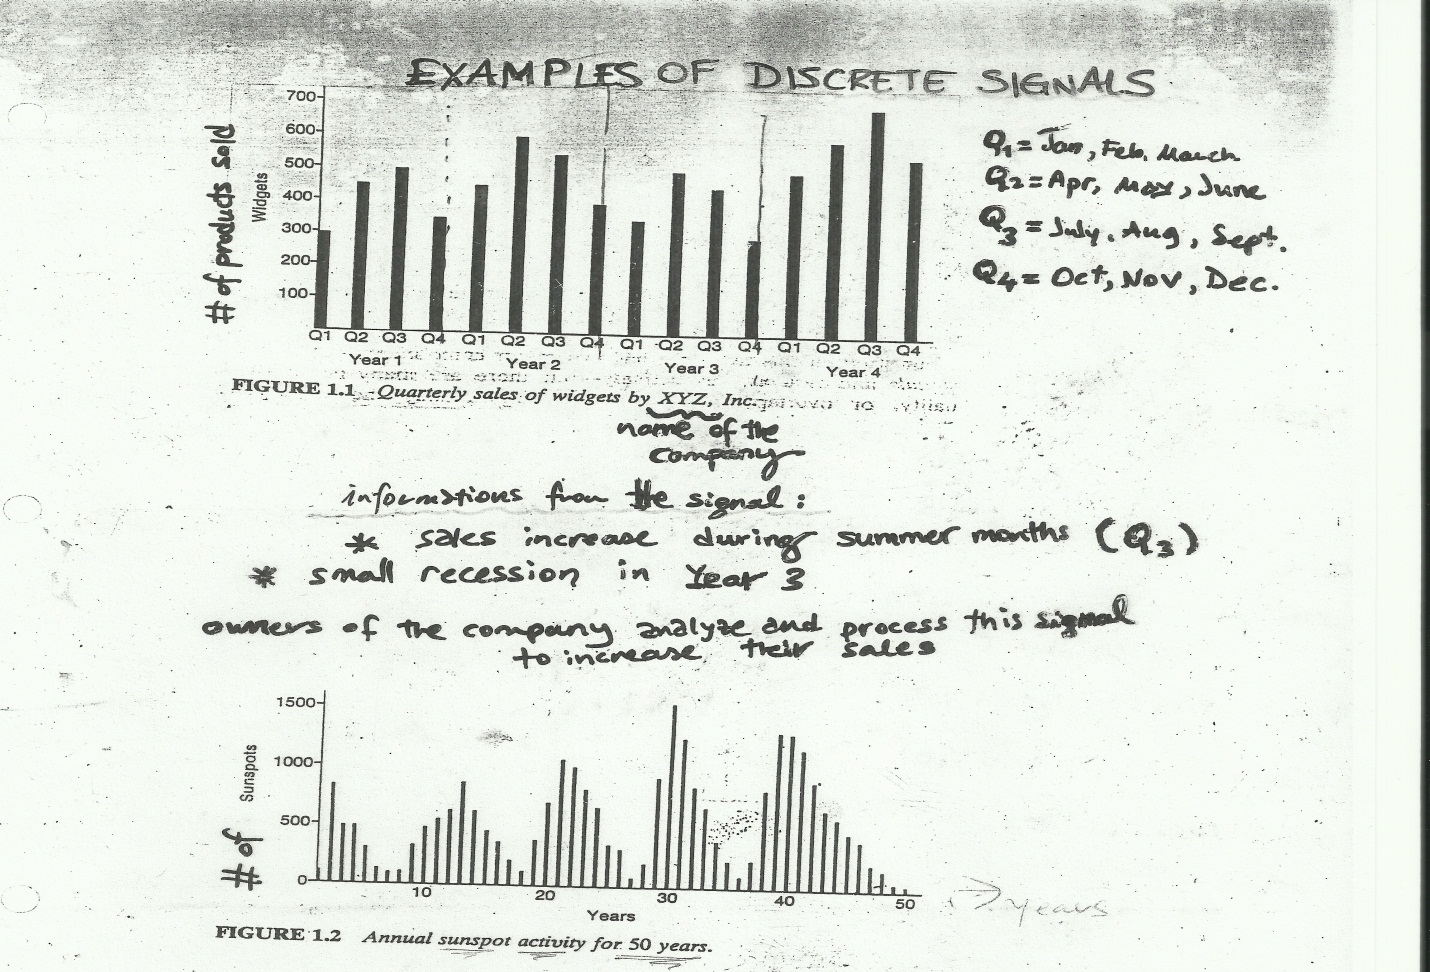 EXAMPLES OF DISCRETE SIGNALS
# of products sold
Widgets
700
600
500
400
300
200
100
Q1 Q2 Q3 Q4 Q1 Q2 Q3 Q4 Q1 Q2 Q3 Q4 Q1 Q2 Q3 Q4
Year 1 Year 2 Year 3 Year 4
Q1 = Jan, Feb. March
Q2 = Apr, May, June
Q3 = July, Aug, Sept.
Q4 = Oct, Nov, Dec.
FIGURE 1.1 Quarterly sales of widgets by XYZ, Inc.
name of the
company
informations from the signal:
* sales increase during summer months (Q3)
* small recession in Year 3
owners of the company analyze and process this signal
to increase their sales
# of
Sunspots
1500
1000
500
0
10 20 30 40 50
Years
years
FIGURE 1.2 Annual sunspot activity for 50 years.